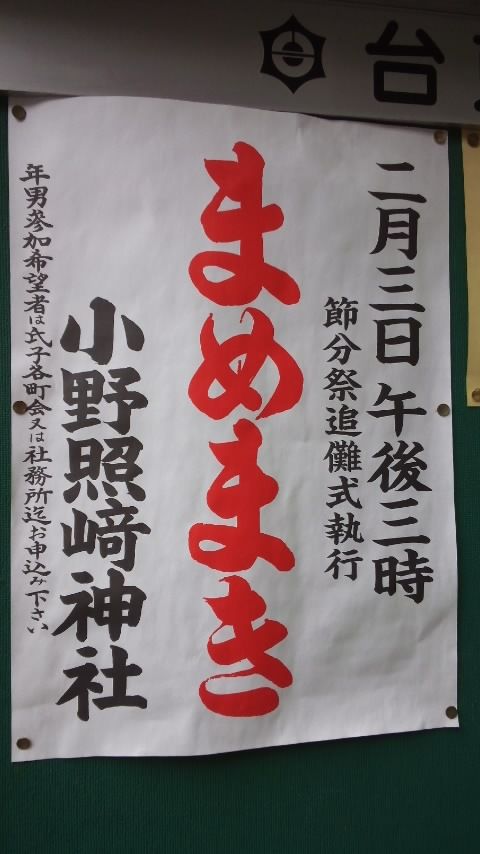 台
二月三日 午後三時
節分祭追儺式執行
まめまき
小野照﨑神社
年男参加希望者は氏子各町会又は社務所迄お申込み下さい